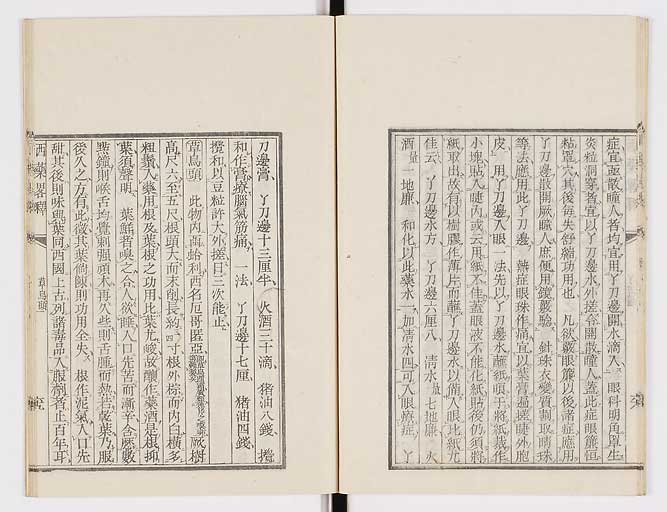 症宜亟散瞳人者均宜用丫刀邊開水滴入眼科明角罩生
炎粒洞穿者宜以丫刀邊水外搽令開散瞳人蓋此症眼簾恒
粘罩穴其後每失舒縮功用也 凡欲驗眼簾以後諸症應用
丫刀邊散開厥瞳人庶便用鏡嚴驗 針珠衣變質割取睛珠
等法應用此丫刀邊 熱症眼珠作痛宜以葉膏遍搽睫外胞
皮 用丫刀邊入眼 一法先以丫刀邊水蘸紙晒于將紙裁作
小塊貼入睫內或云用紙不佳蓋眼液不能化紙貼後仍須將
紙取出故有以樹膠作薄片而蘸丫刀邊水以備入眼比紙尤
佳云 丫刀邊水方 丫刀邊六厘八 清水量七地廉 火
酒量一地廉 和化以此藥水一加清水四可入眼療症 丫
刀邊膏 丫刀邊十三厘半 火酒三十滴 豬油八錢 攪
和作膏療腦氣筋痛 一法 丫刀邊十七厘 豬油四錢
攪和以豆粒許大外搓日三次能止
草烏頭 此物內函蛤利西名厄哥匿亞 厥樹
高尺六至五尺根頭大而末削長約四寸根外棕而內白橫多
粗鬚入藥用根及葉根之功用比葉尤峻故釀作藥酒是根抑
葉須聲明 葉鮮者嗅之合人欲嚏入口先苦而漸辛含厥數
點鐘則喉舌均覺刺强頑木再久些則舌腫而熱枯乾葉乃服
後久之方有此徵其葉倘餿則功用全失 根作泥氣入口先
甜其後則味與葉同西國上古列諸毒品入服劑者止百年耳
西藥畧釋
草烏頭